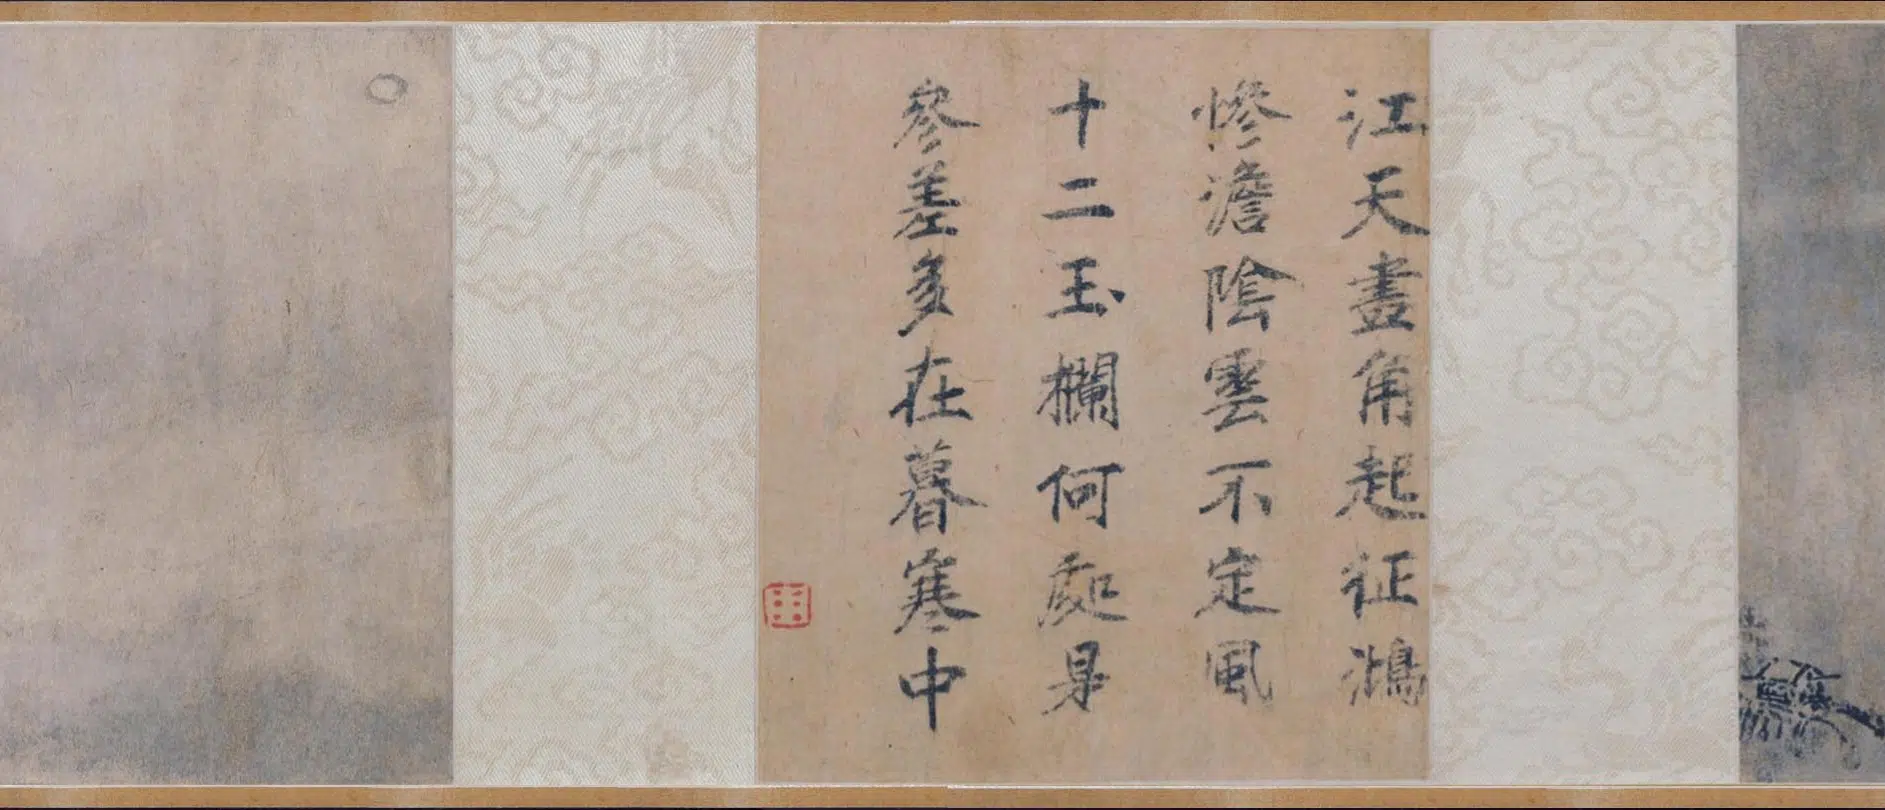 江天畫角起征鴻
慘澹陰雲不定風
十二玉欄何處是
參差多在暮寒中